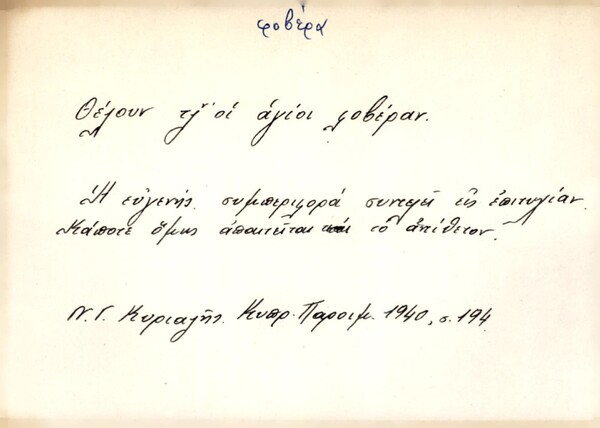 φοβέρα
Θέλουν τζ̌' οἱ ἅγιοι φοβέραν.
Ἡ εὐγενὴς συμπεριφορά συντελεῖ εἰς ἐπιτυχίαν.
Κάποτε ὅμως ἀπαιτεῖται καὶ τὸ ἀντίθετον.
Ν. Γ. Κυριαζῆς. Κυπρ. Παροιμ. 1940, σ. 194